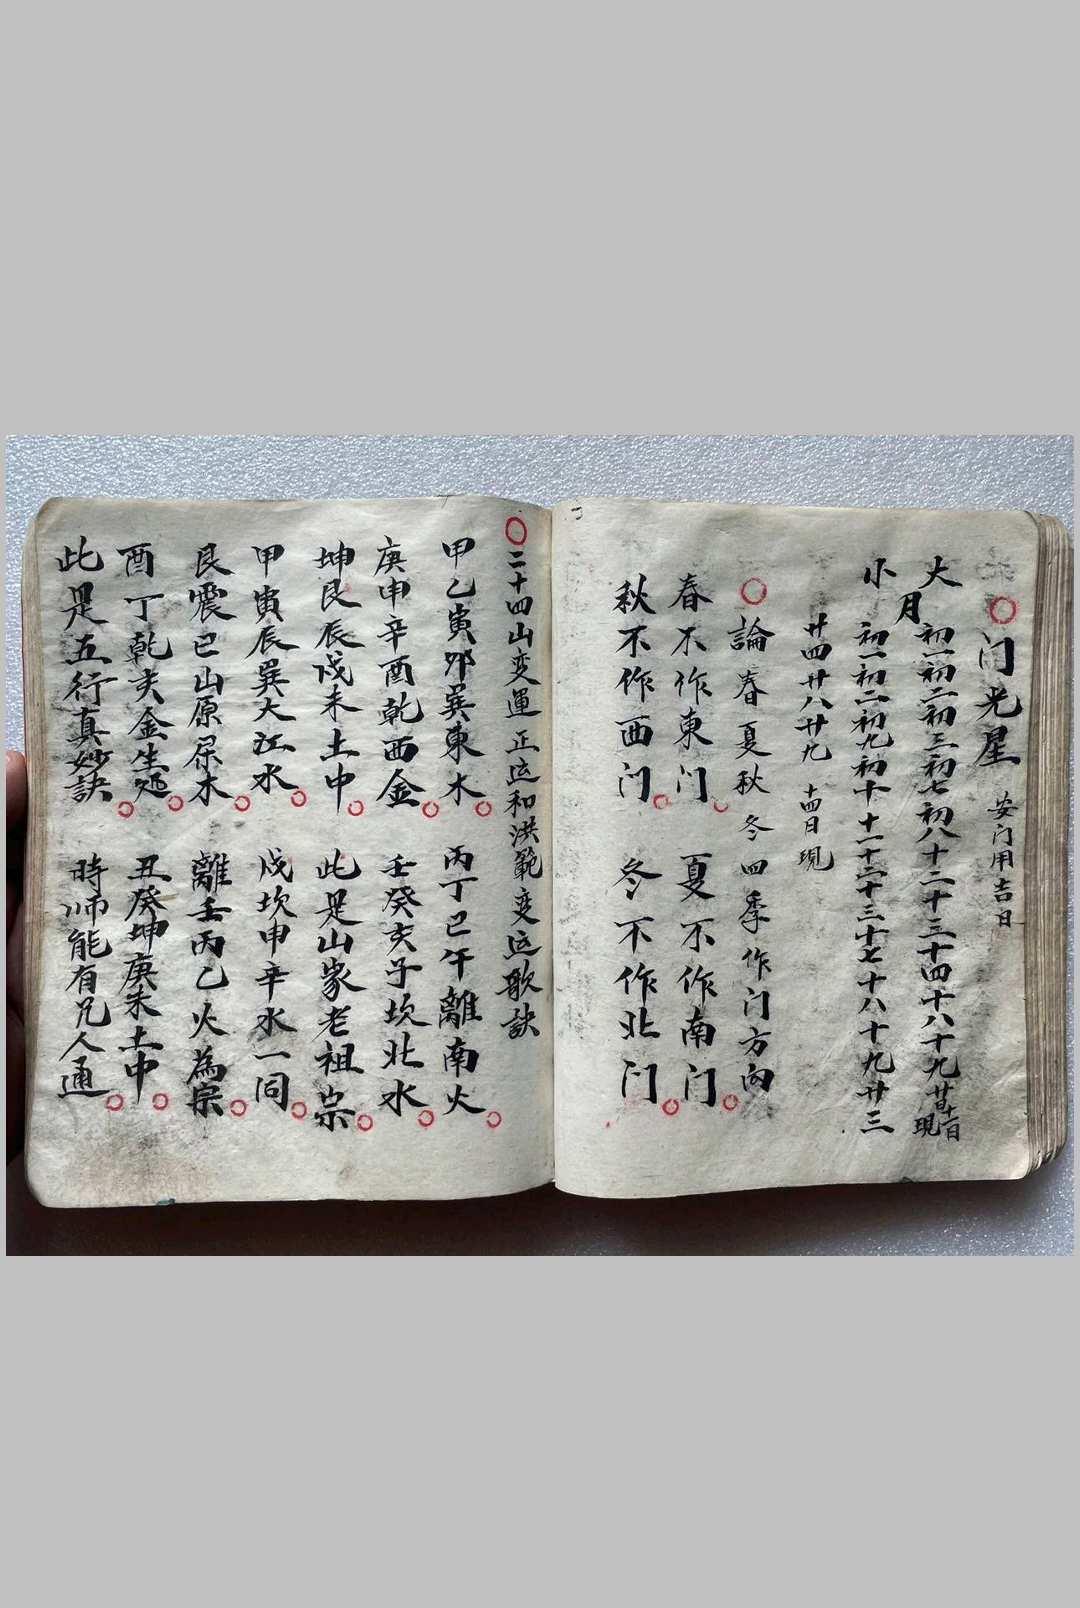 门光星 安门用吉日
大月 初一初二初三初七初八十二十三十四十八十九廿日十一日現
小 初一初二初九初十十一十二十三十七十八十九廿三
廿四廿八廿九 十四日現
論春夏秋冬四季作门方向
春不作東门 夏不作南门
秋不作西门 冬不作北门
二十四山变運正运和洪範变运歌訣
甲乙寅卯巽東木 丙丁巳午離南火
庚申辛酉乾西金 壬癸亥子坎北水
坤艮辰戌未土中 此是山家老祖宗
甲寅辰巽大江水 戌坎申辛水一同
艮震巳山原屬木 離壬丙乙火為宗
酉丁乾亥金生处 丑癸坤庚未土中
此是五行真妙訣 時师能有兄人通